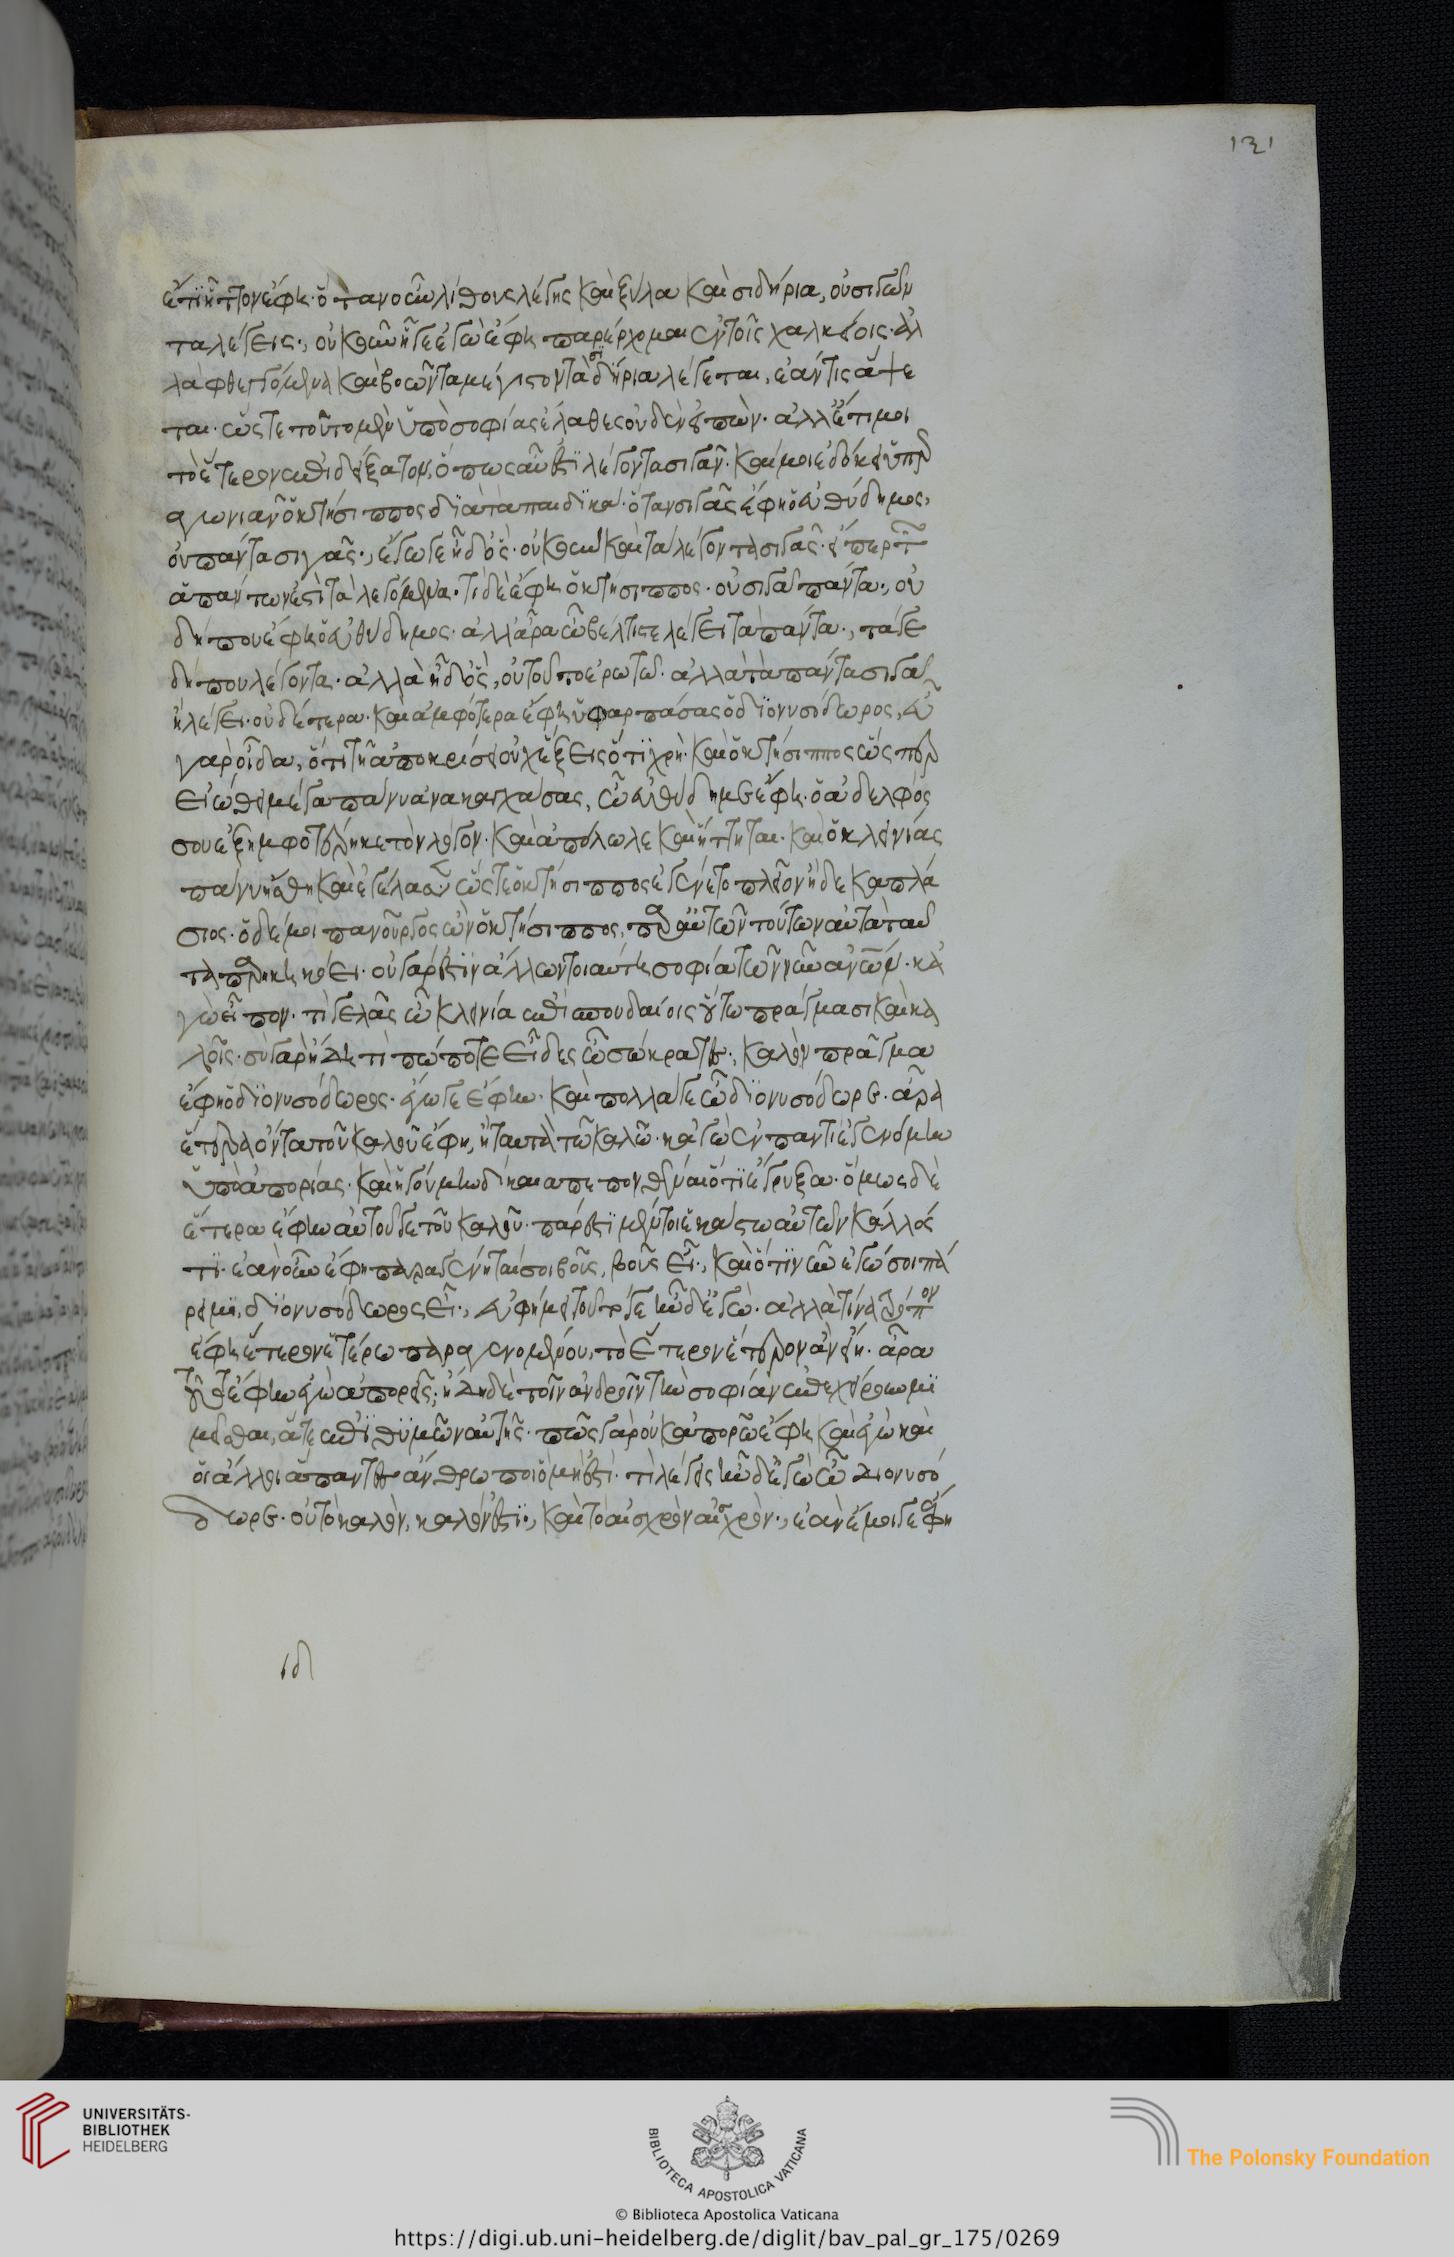 ἔτι ἧττον ἔφη· ὅταν οὖν λίθους λέγης καὶ ξύλα καὶ σιδήρια, οὐ σιγῶν
τα λέγεις; οὐκοῦν ἤγε ἐγὼ ἔφη παρέρχομαι ἐν τοῖς χαλκείοις· ἀλ
λὰ φθεγγόμενα καὶ βοῶντα μέγιστον τὰ σιδήρια λέγεται, ἐάν τις ἅψε
ται· ὥστε τοῦτο μὲν ὑπὸ σοφίας ἔλαθες οὐδὲν εἰπών· ἀλλ' ἔτι μοι
τὸ ἕτερον ἐπιδείξατον, ὅπως αὖ ἔστι λέγοντα σιγᾶν· καί μοι ἐδόκει ὑπερ
αγωνιᾶν ὁ κτήσιππος διὰ τὰ παιδικά· ὅταν σιγᾶς ἔφη ὁ εὐθύδημος,
οὐ πάντα σιγᾶς; ἔγωγε ἦ δ' ὅς· οὐκοῦν καὶ τὰ λέγοντα σιγᾶς· εἴπερ τῶν
ἁπάντων ἐστὶ τὰ λεγόμενα· τί δὲ ἔφη ὁ κτήσιππος· οὐ σιγᾶ πάντα; οὐ
δήπου ἔφη ὁ εὐθύδημος· ἀλλ' ἄρα ὦ βέλτιστε λέγει τὰ πάντα; τά γε
δήπου λέγοντα· ἀλλὰ ἦ δ' ὅς, οὐ τοῦτο ἐρωτῶ· ἀλλὰ τὰ πάντα σιγᾶ
ἢ λέγει· οὐδέτερα καὶ ἀμφότερα ἔφη ὑφαρπάσας ὁ διονυσόδωρος, εὖ
γὰρ οἶδα, ὅτι τῆ ἀποκρίσει οὐχ ἕξεις ὅτι χρή· καὶ ὁ κτήσιππος ὥσπερ
εἰώθει μέγα πάνυ ἀνακαγχάσας, ὦ εὐθύδημε ἔφη· ὁ ἀδελφός
σου ἐξημφοτέρηκε τὸν λόγον· καὶ ἀπόλωλε καὶ ἥττηται· καὶ ὁ κλεινίας
πάνυ ἥσθη καὶ ἐγέλασεν ὥστε ὁ κτήσιππος ἐγένετο πλεῖον ἢ δεκαπλά
σιος· ὁ δέ μοι πανοῦργος ὢν ὁ κτήσιππος, παρ' αὐτῶν τούτων αὐτὰ ταῦ
τα παρηκηκόει· οὐ γάρ ἐστιν ἄλλων τοιαύτη σοφία τῶν νῦν ἀνθρώπων· κἀ
γὼ εἶπον· τί γελᾶς ὦ κλεινία ἐπὶ σπουδαίοις οὕτω πράγμασι καὶ κα
λοῖς· σὺ γὰρ ἤδη τι πώποτε εἶδες ὦ σώκρατες, καλὸν πρᾶγμα
ἔφη ὁ διονυσόδωρος· ἔγωγε ἔφην· καὶ πολλά γε ὦ διονυσόδωρε· ἆρα
ἕτερα ὄντα τοῦ καλοῦ ἔφη, ἢ ταὐτὰ τῶ καλῶ· κἀγὼ ἐν παντὶ ἐγενόμην
ὑπὸ ἀπορίας· καὶ ἡγούμην δίκαια πεπονθέναι ὅτι ἔγρυξα· ὅμως δὲ
ἕτερα ἔφην αὐτοῦ γε τοῦ καλοῦ· πάρεστι μέντοι ἑκάστω αὐτῶν κάλλος
τι· ἐὰν οὖν ἔφη παραγένηταί σοι βοῦς, βοῦς εἶ; καὶ ὅτι νῦν ἐγώ σοι πά
ρειμι, διονυσόδωρος εἶ; εὐφήμει τοῦτό γε ἦν δ' ἐγώ· ἀλλὰ τίνα τρόπον
ἔφη ἕτερον ἑτέρω παραγενομένου, τὸ ἕτερον ἕτερον ἂν εἴη· ἆρα
τοῦτο ἔφην ἐγὼ ἀπορεῖς; ἤδη δὲ τοῖν ἀνδροῖν τὴν σοφίαν ἐπεχείρουν μι
μεῖσθαι, ἅτε ἐπιθυμῶν αὐτῆς· πῶς γὰρ οὐκ ἀπορῶ ἔφη καὶ ἐγὼ καὶ
οἱ ἄλλοι ἅπαντες ἄνθρωποι ὃ μὴ ἔστι· τί λέγεις ἦν δ' ἐγὼ ὦ διονυσό
δωρε· οὐ τὸ καλὸν, καλόν ἐστι; καὶ τὸ αἰσχρὸν αἰσχρόν; ἐὰν ἔμοιγε ἔφη
ιδ
131
UNIVERSITÄTS-
BIBLIOTHEK
HEIDELBERG
BIBLIOTECA APOSTOLICA VATICANA
The Polonsky Foundation
© Biblioteca Apostolica Vaticana
https://digi.ub.uni-heidelberg.de/diglit/bav_pal_gr_175/0269